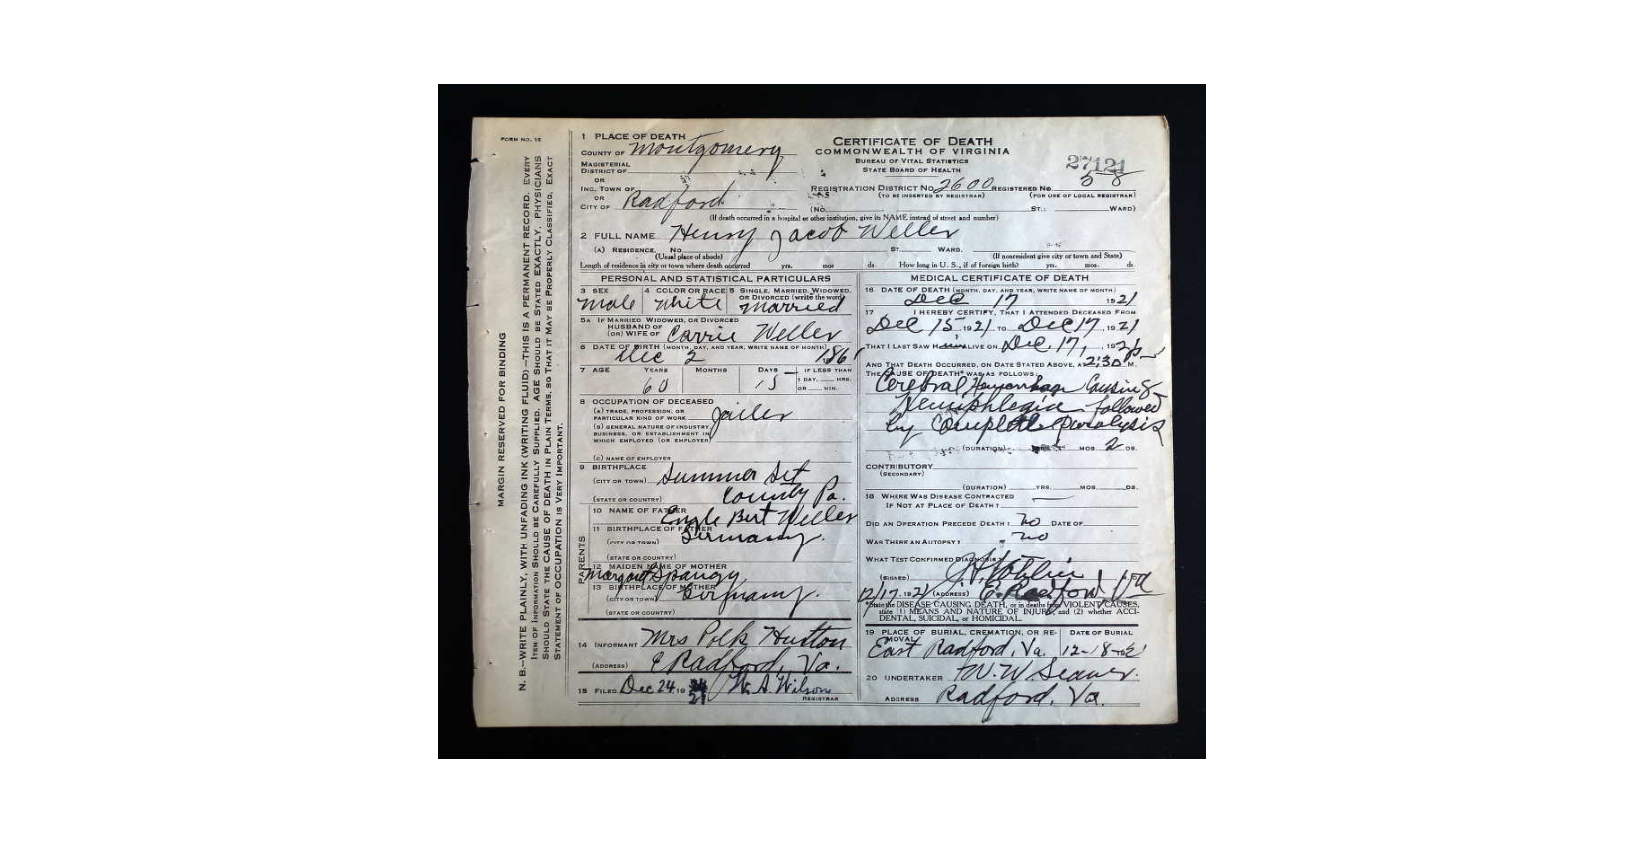 FORM NO. 12
MARGIN RESERVED FOR BINDING
N. B.—WRITE PLAINLY, WITH UNFADING INK (WRITING FLUID)—THIS IS A PERMANENT RECORD. EVERY
ITEM OF INFORMATION SHOULD BE CAREFULLY SUPPLIED. AGE SHOULD BE STATED EXACTLY. PHYSICIANS
SHOULD STATE THE CAUSE OF DEATH IN PLAIN TERMS, SO THAT IT MAY BE PROPERLY CLASSIFIED. EXACT
STATEMENT OF OCCUPATION IS VERY IMPORTANT.
1 PLACE OF DEATH
COUNTY OF Montgomery
MAGISTERIAL
DISTRICT OF
OR
INC. TOWN OF
OR
CITY OF Radford
CERTIFICATE OF DEATH
COMMONWEALTH OF VIRGINIA
BUREAU OF VITAL STATISTICS
STATE BOARD OF HEALTH
27121
REGISTRATION DISTRICT NO. 2600 REGISTERED NO. 58
(TO BE INSERTED BY REGISTRAR) (FOR USE OF LOCAL REGISTRAR)
(NO. ST.; WARD)
(If death occurred in a hospital or other institution, give its NAME instead of street and number)
2 FULL NAME Henry Jacob Weller
(A) RESIDENCE. No. ST. WARD.
(Usual place of abode) (If nonresident give city or town and State)
Length of residence in city or town where death occurred yrs. mos. ds. How long in U. S., if of foreign birth? yrs. mos. ds.
PERSONAL AND STATISTICAL PARTICULARS
3 SEX 4 COLOR OR RACE 5 SINGLE, MARRIED, WIDOWED,
OR DIVORCED (write the word)
Male White Married
5A IF MARRIED, WIDOWED, OR DIVORCED
HUSBAND OF
(OR) WIFE OF Carrie Weller
6 DATE OF BIRTH (MONTH, DAY, AND YEAR, WRITE NAME OF MONTH)
Dec 2 1861
7 AGE YEARS MONTHS DAYS IF LESS THAN
1 DAY, HRS.
OR MIN.
60 15
8 OCCUPATION OF DECEASED
(A) TRADE, PROFESSION, OR
PARTICULAR KIND OF WORK Jailer
(B) GENERAL NATURE OF INDUSTRY,
BUSINESS, OR ESTABLISHMENT IN
WHICH EMPLOYED (OR EMPLOYER)
(C) NAME OF EMPLOYER
9 BIRTHPLACE
(CITY OR TOWN) Summer Set
(STATE OR COUNTRY) County Pa.
PARENTS
10 NAME OF FATHER Engle Bert Weller
11 BIRTHPLACE OF FATHER
(CITY OR TOWN) Germany.
(STATE OR COUNTRY)
12 MAIDEN NAME OF MOTHER
Margaret Spangy
13 BIRTHPLACE OF MOTHER
(CITY OR TOWN) Germany.
(STATE OR COUNTRY)
14 INFORMANT Mrs Polk Hutton
(ADDRESS) E Radford, Va.
15 FILED Dec 24, 19 21 W. A. Wilson
REGISTRAR
MEDICAL CERTIFICATE OF DEATH
16 DATE OF DEATH (MONTH, DAY, AND YEAR, WRITE NAME OF MONTH)
Dec 17 1921
17 I HEREBY CERTIFY, THAT I ATTENDED DECEASED FROM
Dec 15, 1921, TO Dec 17, 1921
THAT I LAST SAW H ALIVE ON Dec. 17, 192
AND THAT DEATH OCCURRED, ON DATE STATED ABOVE, AT 2:30 P M.
THE CAUSE OF DEATH* WAS AS FOLLOWS:
Cerebral Hemorrhage Causing
Hemiphlegia followed
by Complete Paralysis
(DURATION) MOS. 2 DS.
CONTRIBUTORY
(SECONDARY)
(DURATION) YRS. MOS. DS.
18 WHERE WAS DISEASE CONTRACTED
IF NOT AT PLACE OF DEATH?
DID AN OPERATION PRECEDE DEATH? No DATE OF
WAS THERE AN AUTOPSY? No
WHAT TEST CONFIRMED DIAGNOSIS?
(SIGNED)
12/17, 1921 (ADDRESS) E. Radford Va
*State the DISEASE CAUSING DEATH, or in deaths from VIOLENT CAUSES,
state (1) MEANS AND NATURE OF INJURY, and (2) whether ACCI-
DENTAL, SUICIDAL, or HOMICIDAL.
19 PLACE OF BURIAL, CREMATION, OR RE-
MOVAL DATE OF BURIAL
East Radford, Va. 12-18-21
20 UNDERTAKER W. W. Seaver.
ADDRESS Radford, Va.